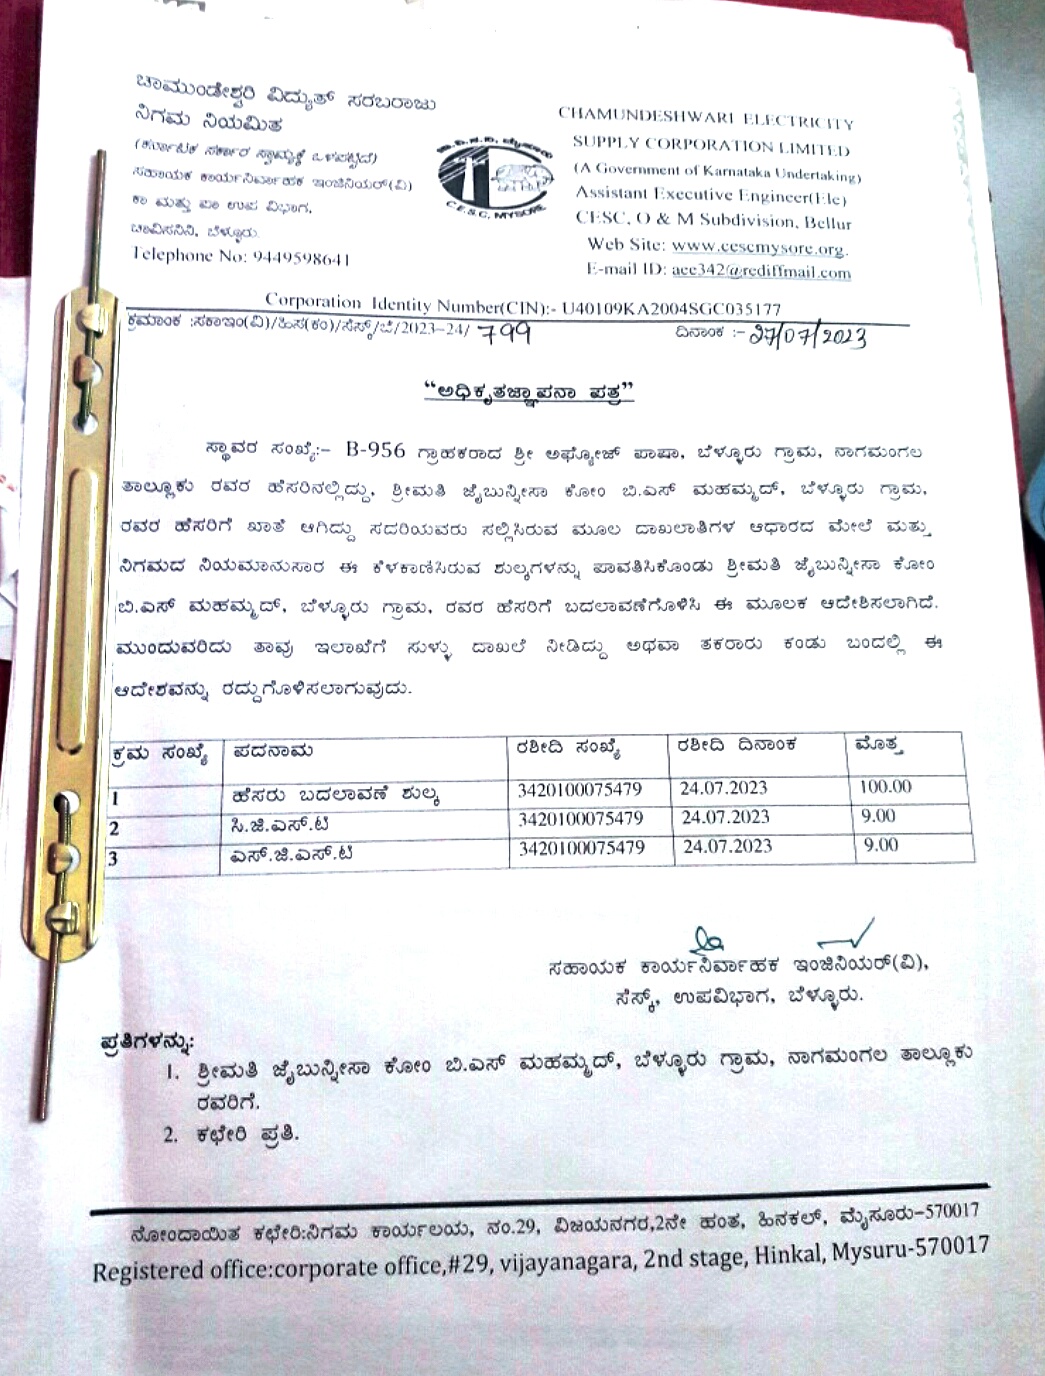 ಚಾಮುಂಡೇಶ್ವರಿ ವಿದ್ಯುತ್ ಸರಬರಾಜು
ನಿಗಮ ನಿಯಮಿತ
(ಕರ್ನಾಟಕ ಸರ್ಕಾರ ಸ್ವಾಮ್ಯಕ್ಕೆ ಒಳಪಟ್ಟಿದೆ)
ಸಹಾಯಕ ಕಾರ್ಯನಿರ್ವಾಹಕ ಇಂಜಿನಿಯರ್(ವಿ)
ಕಾ ಮತ್ತು ಪಾ ಉಪ ವಿಭಾಗ,
ಚಾವಿಸನಿನಿ, ಬೆಳ್ಳೂರು.
Telephone No: 9449598641
C.E.S.C, MYSORE
CHAMUNDESHWARI ELECTRICITY
SUPPLY CORPORATION LIMITED
(A Government of Karnataka Undertaking)
Assistant Executive Engineer(Ele)
CESC, O & M Subdivision, Bellur
Web Site: www.cescmysore.org.
E-mail ID: aee342@rediffmail.com
Corporation Identity Number(CIN):- U40109KA2004SGC035177
ಕ್ರಮಾಂಕ :ಸಕಾಇಂ(ವಿ)/ಹಿಸ(ಕಂ)/ಸೆಸ್ಕ್/ಬೆ/2023-24/ 799 ದಿನಾಂಕ :- 27/07/2023
“ಅಧಿಕೃತಜ್ಞಾಪನಾ ಪತ್ರ”
ಸ್ಥಾವರ ಸಂಖ್ಯೆ:- B-956 ಗ್ರಾಹಕರಾದ ಶ್ರೀ ಅಫ್ಯೋಜ್ ಪಾಷಾ, ಬೆಳ್ಳೂರು ಗ್ರಾಮ, ನಾಗಮಂಗಲ
ತಾಲ್ಲೂಕು ರವರ ಹೆಸರಿನಲ್ಲಿದ್ದು, ಶ್ರೀಮತಿ ಜೈಬುನ್ನೀಸಾ ಕೋಂ ಬಿ.ಎಸ್ ಮಹಮ್ಮದ್, ಬೆಳ್ಳೂರು ಗ್ರಾಮ,
ರವರ ಹೆಸರಿಗೆ ಖಾತೆ ಆಗಿದ್ದು ಸದರಿಯವರು ಸಲ್ಲಿಸಿರುವ ಮೂಲ ದಾಖಲಾತಿಗಳ ಆಧಾರದ ಮೇಲೆ ಮತ್ತು
ನಿಗಮದ ನಿಯಮಾನುಸಾರ ಈ ಕೆಳಕಾಣಿಸಿರುವ ಶುಲ್ಕಗಳನ್ನು ಪಾವತಿಸಿಕೊಂಡು ಶ್ರೀಮತಿ ಜೈಬುನ್ನೀಸಾ ಕೋಂ
ಬಿ.ಎಸ್ ಮಹಮ್ಮದ್, ಬೆಳ್ಳೂರು ಗ್ರಾಮ, ರವರ ಹೆಸರಿಗೆ ಬದಲಾವಣೆಗೊಳಿಸಿ ಈ ಮೂಲಕ ಆದೇಶಿಸಲಾಗಿದೆ.
ಮುಂದುವರಿದು ತಾವು ಇಲಾಖೆಗೆ ಸುಳ್ಳು ದಾಖಲೆ ನೀಡಿದ್ದು ಅಥವಾ ತಕರಾರು ಕಂಡು ಬಂದಲ್ಲಿ ಈ
ಆದೇಶವನ್ನು ರದ್ದುಗೊಳಿಸಲಾಗುವುದು.
ಕ್ರಮ ಸಂಖ್ಯೆ ಪದನಾಮ ರಶೀದಿ ಸಂಖ್ಯೆ ರಶೀದಿ ದಿನಾಂಕ ಮೊತ್ತ
1 ಹೆಸರು ಬದಲಾವಣೆ ಶುಲ್ಕ 3420100075479 24.07.2023 100.00
2 ಸಿ.ಜಿ.ಎಸ್.ಟಿ 3420100075479 24.07.2023 9.00
3 ಎಸ್.ಜಿ.ಎಸ್.ಟಿ 3420100075479 24.07.2023 9.00
ಸಹಾಯಕ ಕಾರ್ಯನಿರ್ವಾಹಕ ಇಂಜಿನಿಯರ್(ವಿ),
ಸೆಸ್ಕ್, ಉಪವಿಭಾಗ, ಬೆಳ್ಳೂರು.
ಪ್ರತಿಗಳನ್ನು:
1. ಶ್ರೀಮತಿ ಜೈಬುನ್ನೀಸಾ ಕೋಂ ಬಿ.ಎಸ್ ಮಹಮ್ಮದ್, ಬೆಳ್ಳೂರು ಗ್ರಾಮ, ನಾಗಮಂಗಲ ತಾಲ್ಲೂಕು
ರವರಿಗೆ.
2. ಕಛೇರಿ ಪ್ರತಿ.
ನೋಂದಾಯಿತ ಕಛೇರಿ:ನಿಗಮ ಕಾರ್ಯಲಯ, ನಂ.29, ವಿಜಯನಗರ,2ನೇ ಹಂತ, ಹಿನಕಲ್, ಮೈಸೂರು-570017
Registered office:corporate office,#29, vijayanagara, 2nd stage, Hinkal, Mysuru-570017